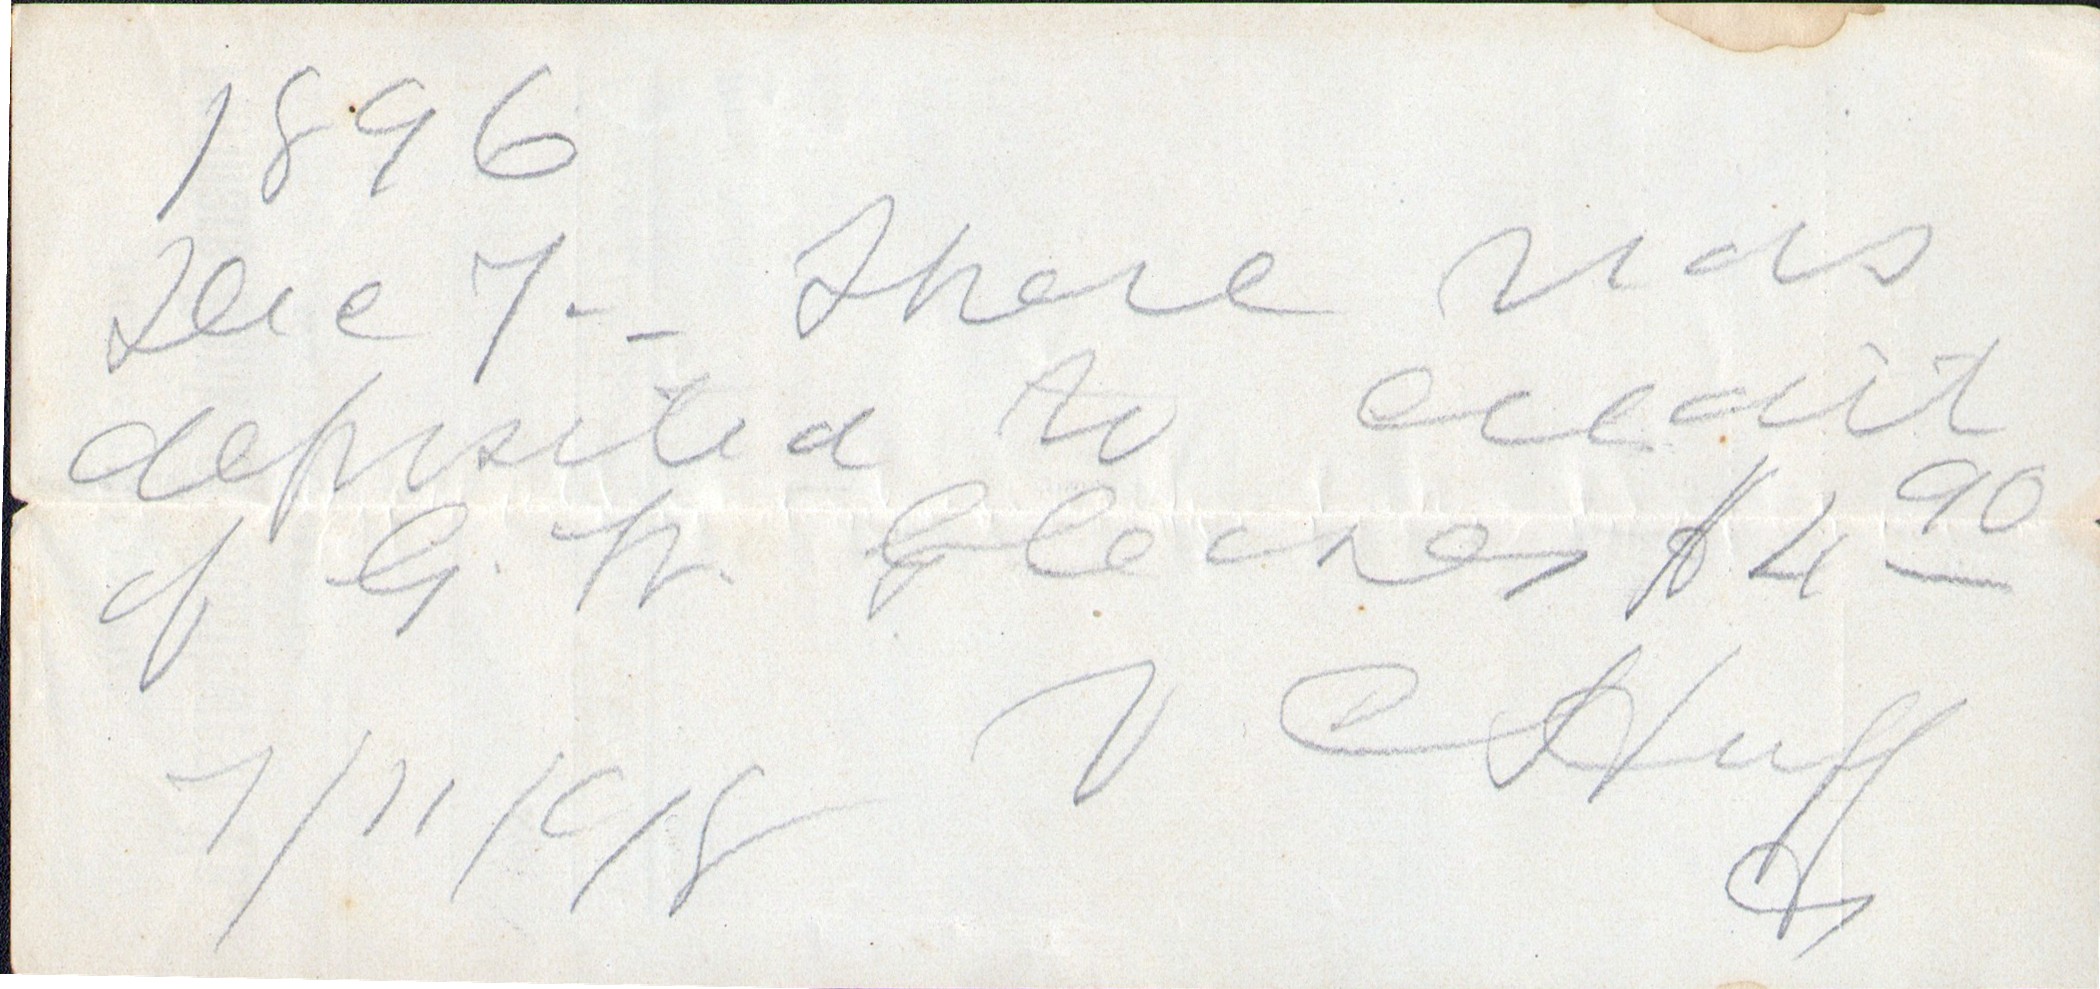 1896
Dec 7-- There was
deposited to credit
of G. W. Gleanes $4 90
V C Huff
7/11/18